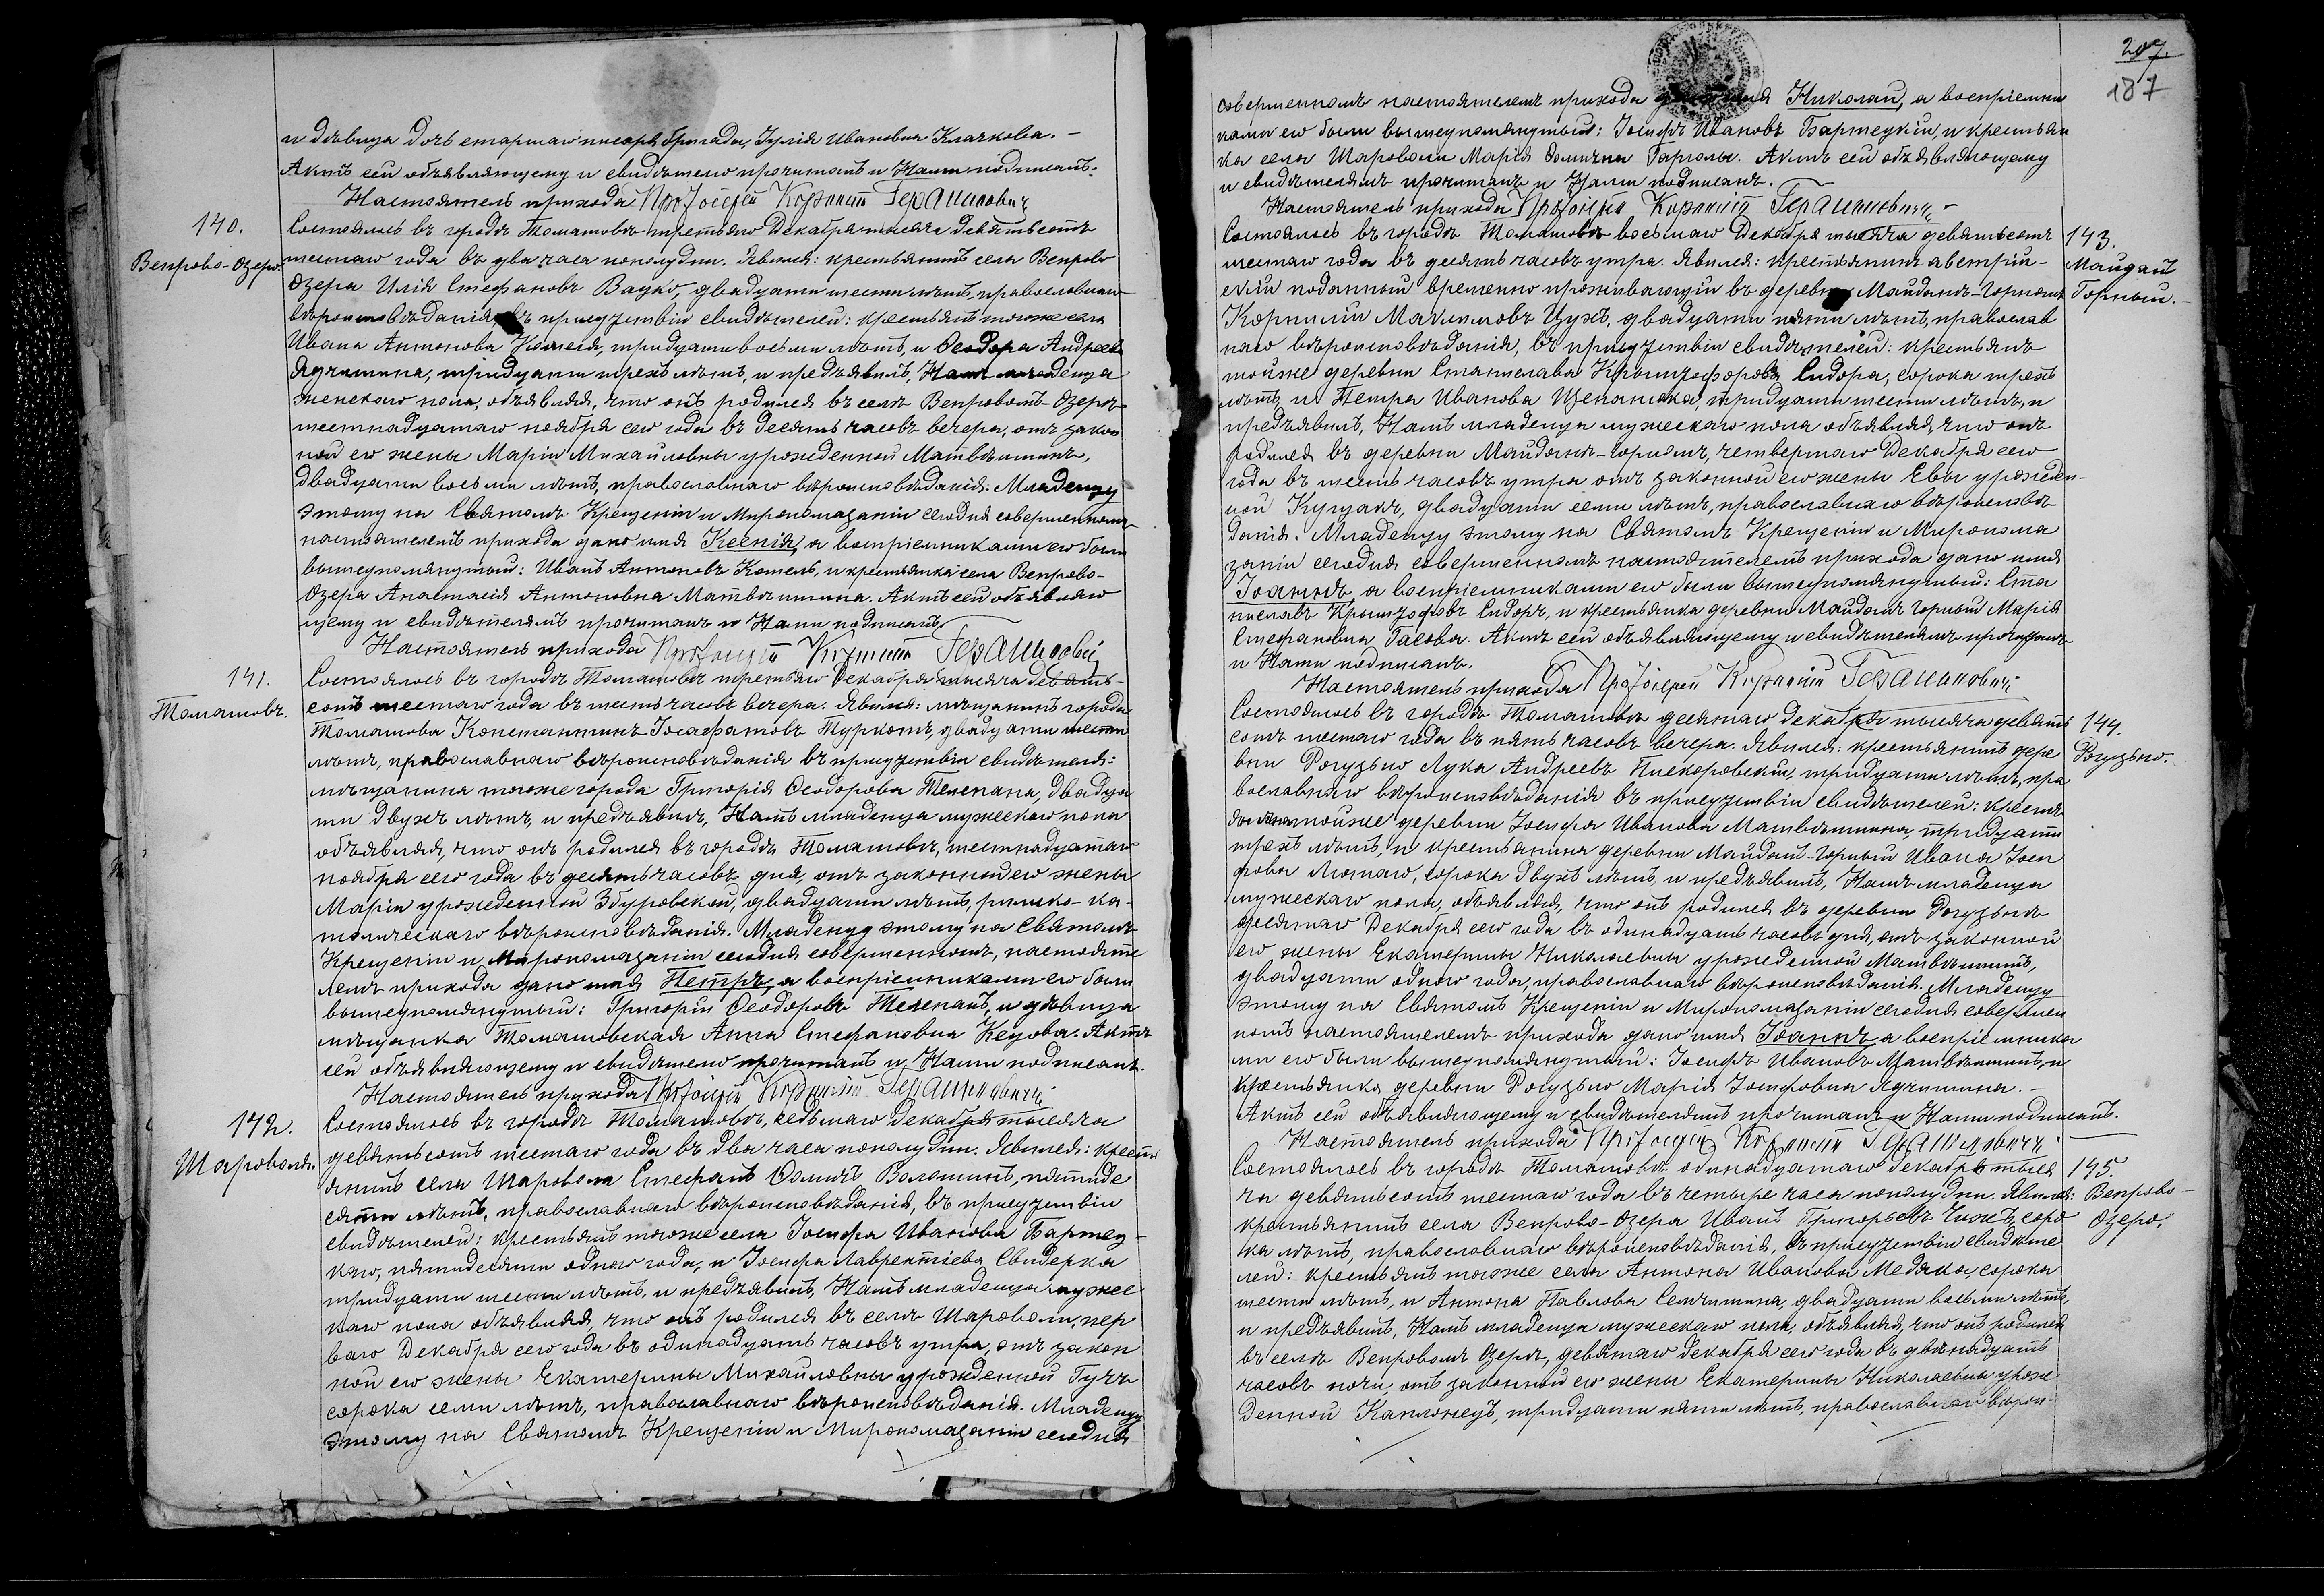 и дѣвица дочь старшаго писаря бригады, Іулія Ивановна Клачкова. –
Актъ сей объявляющему и свидѣтелю прочитанъ и Нами подписанъ.
Настоятель прихода Протоіерей Корнилій
140.
Венрово-Озеро.
Состоялось въ городѣ Томашовѣ третьяго Декабря тысяча девятьсотъ
шестаго года въ два часа пополудни. Явился: крестьянинъ села Венрово
Озера Илія Стефановъ Вацко, двадцати шести лѣтъ, православнаго
вѣроисповѣданія, въ присутствіи свидѣтелей: крестьянъ тогоже села
Ивана Антонова Кателя, тридцати восьми лѣтъ, и Ѳеодора Андреева
Ядчишина, тридцати трехъ лѣтъ, и предъявилъ, Намъ младенца
женскаго пола, объявляя, что онъ родился въ селѣ Венровомъ-Озерѣ
шестнадцатаго ноября сего года въ десять часовъ вечера, отъ закон
ной его жены Маріи Михайловны урожденной Матвѣишинъ,
двадцати восьми лѣтъ, православнаго вѣроисповѣданія. Младенцу
этому на Святомъ Крещеніи и Миропомазаніи сегодня совершенномъ
настоятелемъ прихода дано имя Ксенія, а воспріемниками его были
вышеупомянутый: Иванъ Антоновъ Котель, и крестьянка села Венрово-
Озера Анастасія Антоновна Матвѣишина. Актъ сей объявляю
щему и свидѣтелямъ прочитанъ и Нами подписанъ
Настоятель прихода Протоіерей Корнилій
141.
Томашовъ.
Состоялось въ городѣ Томашовѣ третьяго Декабря тысяча девять-
сотъ шестаго года въ шесть часовъ вечера. Явился: мѣщанинъ города
Томашова Константинъ Іосафатовъ Турконъ, двадцати шести
лѣтъ, православнаго вѣроисповѣданія въ присутствіи свидѣтеля:
мѣщанина тогоже города Григорія Ѳеодорова Телепана, двадца
ти двухъ лѣтъ, и предъявилъ, Намъ младенца мужескаго пола
объявляя, что онъ родился въ городѣ Томашовѣ, шестнадцатаго
ноября сего года въ десять часовъ дня, отъ законной его жены
Маріи урожденной Збуровской, двадцати лѣтъ, римско-ка-
толическаго вѣроисповѣданія. Младенцу этому на Святомъ
Крещеніи и Миропомазаніи сегодня совершенномъ, настояте
лемъ прихода дано имя Петръ, а воспріемниками его были
вышеупомянутый: Григорій Ѳеодоровъ Телепанъ, и дѣвица
мѣщанка Томашовская Анна Стефановна Кецова. Актъ
сей объявляющему и свидѣтелю прочитанъ и Нами подписанъ.
Настоятель прихода Протоіерей Корнилій
142.
Шароволя.
Состоялось въ городѣ Томашовѣ, седьмаго Декабря тысяча
девятьсотъ шестаго года въ два часа пополудни. Явился: кресть
янинъ села Шароволя Стефанъ Ѳоминъ Волошинъ, пятиде
сяти лѣтъ, православнаго вѣроисповѣданія, въ присутствіи
свидѣтелей: крестьянъ тогоже села Іосифа Иванова Бартец-
каго, пятидесяти одного года, и Іосифа Лаврентіева Свидерка
тридцати шести лѣтъ, и предъявилъ, Намъ младенца мужес
каго пола объявляя, что онъ родился въ селѣ Шароволи, пер
ваго Декабря сего года въ одинадцать часовъ утра, отъ закон
ной его жены Екатерины Михайловны урожденной Гучъ
сорока семи лѣтъ, православнаго вѣроисповѣданія. Младенцу
этому на Святомъ Крещеніи и Миропомазаніи сегодня
207.
187
совершенномъ настоятелемъ прихода дано имя Николай, а воспріемни
ками его были вышеупомянутый: Іосифъ Ивановъ Бартецкій, и крестьян
ка села Шароволи Марія Ѳомична Гарголы. Актъ сей объявляющему
и свидѣтелямъ прочитанъ и Нами подписанъ.
Настоятель прихода Протоіерей Корнилій
143.
Майданъ
Горный. –
Состоялось въ городѣ Томашовѣ восьмаго Декабря тысяча девятьсотъ
шестаго года въ десять часовъ утра. Явился: крестьянинъ австрій-
скій подданный временно проживающій въ деревнѣ Майданъ-Горномъ
Корнилій Максимовъ Цухъ, двадцати пяти лѣтъ, православ
наго вѣроисповѣданія, въ присутствіи свидѣтелей: крестьянъ
тойже деревни Станислава Крыштофорова Сидора, сорока трехъ
лѣтъ, и Петра Иванова Щепаняка, тридцати шести лѣтъ, и
предъявилъ, Намъ младенца мужескаго пола объявляя, что онъ
родился въ деревни Майданъ-Горномъ, четвертаго Декабря сего
года въ шесть часовъ утра отъ законной его жены Евы урожден-
ной Куцакъ, двадцати семи лѣтъ, православнаго вѣроисповѣ
данія. Младенцу этому на Святомъ Крещеніи и Миропома
заніи сегодня совершенномъ настоятелемъ прихода дано имя
Іоаннъ, а воспріемниками его были вышеупомянутый: Ста
ниславъ Крыштофовъ Сидоръ, и крестьянка деревни Майданъ Горный Марія
Стефановна Гасова. Актъ сей объявляющему и свидѣтелямъ прочитанъ
и Нами подписанъ.
Настоятель прихода Протоіерей Корнилій
144.
Рогузьно.
Состоялось въ городѣ Томашовѣ десятаго Декабря тысяча девять
сотъ шестаго года въ пять часовъ вечера. Явился: крестьянинъ дере
вни Рогузьно Лука Андреевъ Пискоровскій, тридцати лѣтъ, пра
вославнаго вѣроисповѣданія въ присутствіи свидѣтелей: крестья
тойже деревни Іосифа Иванова Матвѣишина, тридцати
трехъ лѣтъ, и крестьянина деревни Майданъ-Горный Ивана Іоси
фова Лютаго, сорока двухъ лѣтъ, и предъявилъ, Намъ младенца
мужескаго пола, объявляя, что онъ родился въ деревни Рогузьнѣ
десятаго Декабря сего года въ одинадцать часовъ дня, отъ законной
его жены Екатерины Николаевны урожденной Матвѣишинъ,
двадцати одного года, православнаго вѣроисповѣданія. Младенцу
этому на Святомъ Крещеніи и Миропомазаніи сегодня совершен
номъ настоятелемъ прихода дано имя Іоаннъ, а воспріемника
ми его были вышеупомянутый: Іосифъ Ивановъ Матвѣишинъ, и
крестьянка деревни Рогузьно Марія Іосифовна Ядчишина. –
Актъ сей объявляющему и свидѣтелямъ прочитанъ и Нами подписанъ.
Настоятель прихода Протоіерей Корнилій
145.
Венрово-
Озеро.
Состоялось въ городѣ Томашовѣ одинадцатаго Декабря тыся
ча девятьсотъ шестаго года въ четыре часа пополудни. Явился:
крестьянинъ села Венрово-Озера Иванъ Григорьевъ Чижъ, соро
ка лѣтъ, православнаго вѣроисповѣданія, въ присутствіи свидѣте
лей: крестьянъ тогоже села Антона Иванова Медяка, сорока
шести лѣтъ, и Антона Павлова Семчишина, двадцати восьми лѣтъ,
и предъявилъ, Намъ младенца мужескаго пола, объявляя, что онъ родился
въ селѣ Венровомъ Озерѣ, девятаго Декабря сего года въ двѣнадцать
часовъ ночи, отъ законной его жены Екатерины Николаевны урож
денной Каплонецъ, тридцати пяти лѣтъ, православнаго вѣрои-